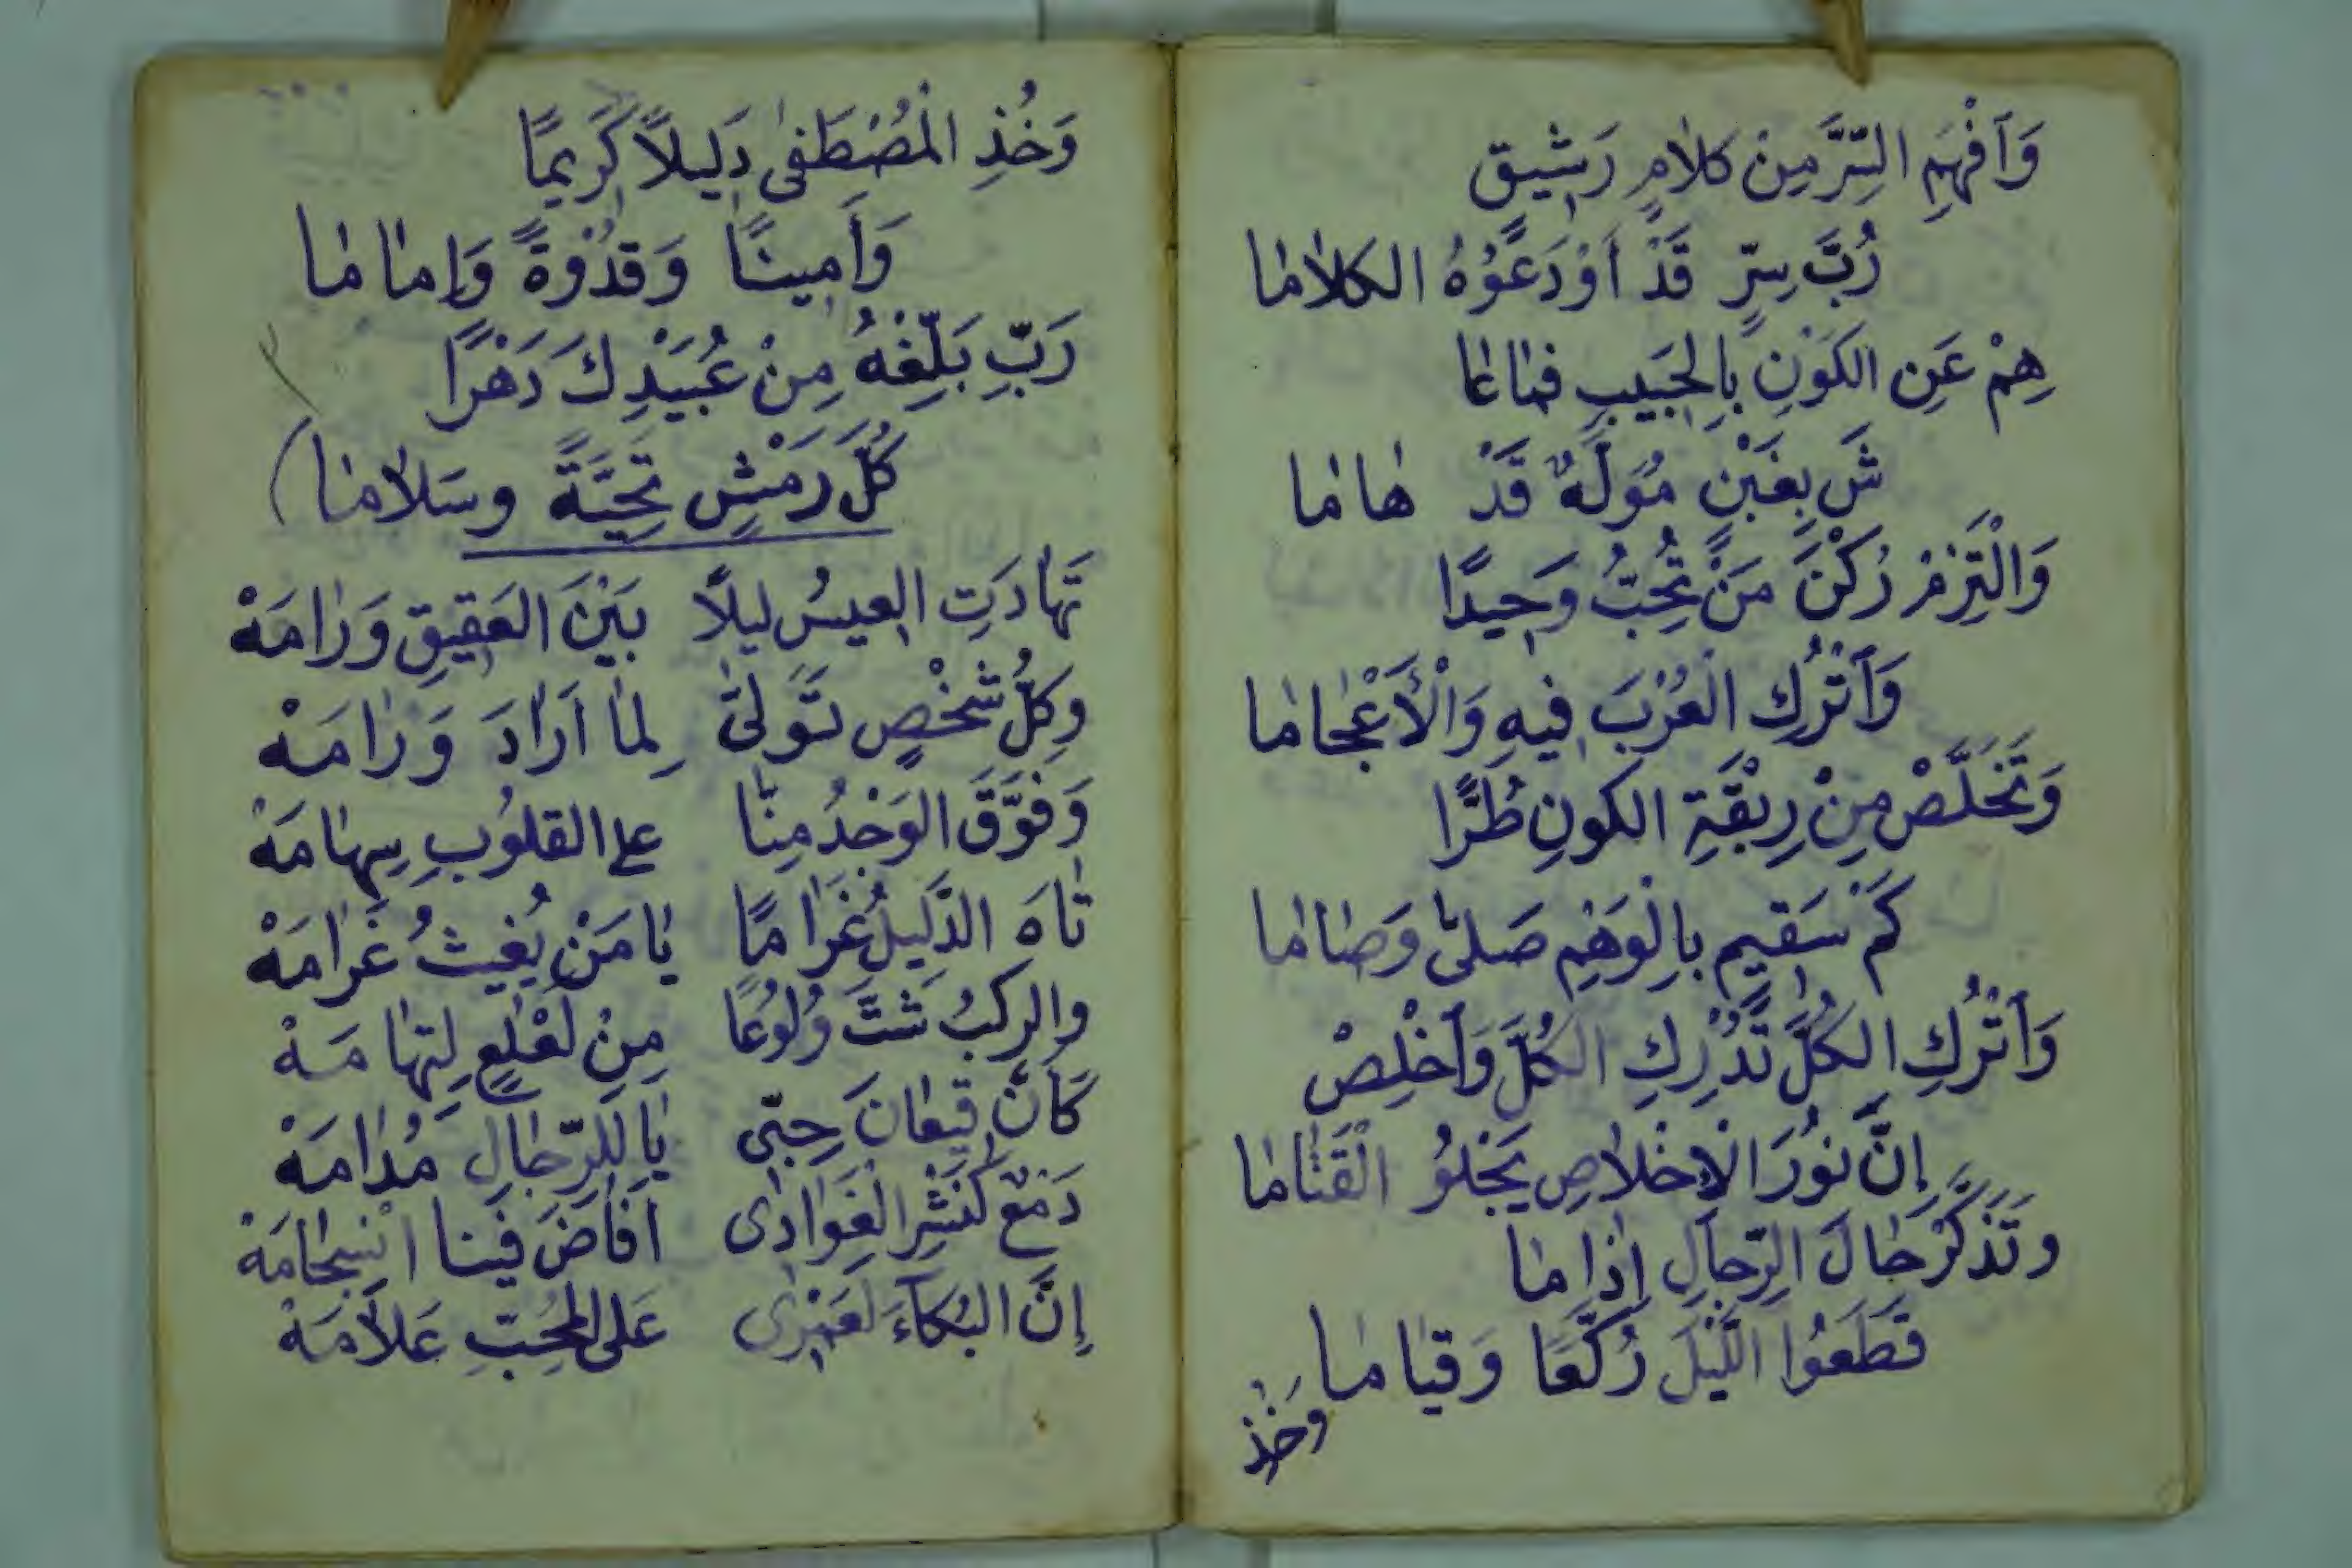 وَاَفْهَمِ السِّرَّ مِنْ كَلَامٍ رَشِيقٍ
رُبَّ سِرٍّ قَدْ اَوْدَعُوْهُ الكَلَامَا
هِمْ عَنِ الكَوْنِ بِالحَبِيبِ فَمَا عَا
شَ بِغَبْنٍ مُوَلَّهٌ قَدْ هَامَا
وَالْتَزِمْ رُكْنَ مَنْ تُحِبُّ وَحِيدًا
وَاَتْرُكِ الْعُرْبَ فِيهِ وَالْأَعْجَامَا
وَتَخَلَّصْ مِنْ رِبْقَةِ الكَونِ طُرًّا
كَمْ سَقِيمٍ بِالْوَهْمِ صَلَّى وَصَامَا
وَاَتْرُكِ الكُلَّ تُدْرِكِ الكُلَّ وَاَخْلِصْ
إِنَّ نُورَ الْاِخْلَاصِ يَجْلُو الْقَتَامَا
وتَذَكَّرْ حَالَ الرِّجَالِ اِذَا مَا
قَطَعُوا اللَّيْلَ رُكَّعًا وَقِيَامَا
وَخُذِ
وَخُذِ الْمُصْطَفَى دَلِيلاً كَرِيمًا
وَاَمِينًا وَقُدْوَةً وَاِمَامَا
رَبِّ بَلِّغْهُ مِنْ عُبَيْدِكَ دَهْرًا
كُلَّ رَمْشٍ تَحِيَّةً وسَلَامَا)
تَهَادَتِ العِيسُ لَيلاً بَيْنَ العَقِيقِ وَرَامَهْ
وكلُّ شَخْصٍ تَوَلَّى لِمَا اَرَادَ وَرَامَهْ
وَفَوَّقَ الوَجْدُ مِنَّا على القلُوبِ سِهَامَهْ
تَاهَ الذَّلِيلُ غَرَامًا يَا مَنْ يُغِيثُ غَرَامَهْ
والركبُ شَتَّ وُلُوعًا مِنْ لَعْلَعٍ لِتِهَامَهْ
كَاَنَّ قِيعَانَ حِبِّى يَا لِلرِّجَالِ مُدَامَهْ
دَمْعٌ كَنَشْرِ الْغَوَادِى اَفَاضَ فِينَا انْسِجَامَهْ
إِنَّ البُكَآءَ لَعَمْرِى عَلَى المُحِبِّ عَلَامَهْ